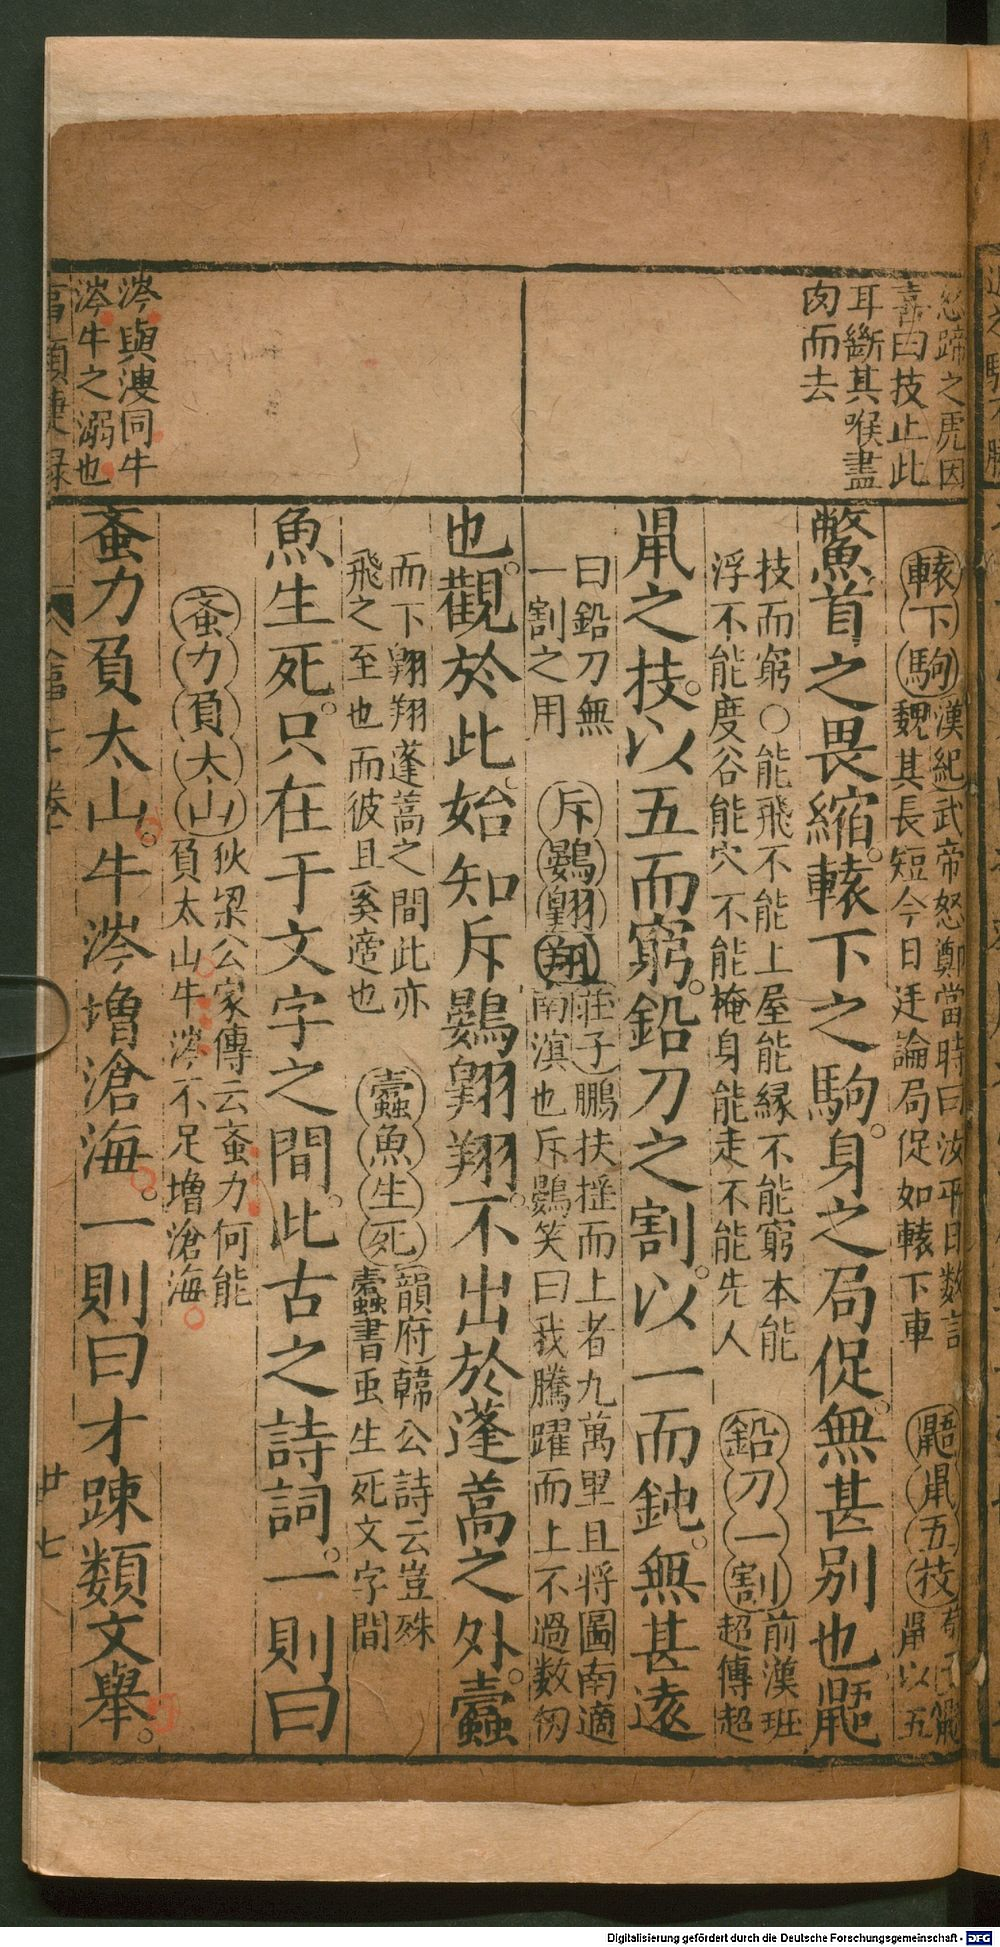 怒蹄之虎因
喜曰技止此
耳斷其喉盡
肉而去
涔與洩同牛
涔牛之溺也
轅下駒漢紀武帝怒鄭當時曰汝平日数言
魏其長短今日廷論局促如轅下車
鼯鼠五技
鼠以五
鱉首之畏縮。轅下之駒。身之局促。無甚别也鼯
技而窮〇能飛不能上屋能縁不能窮本能
浮不能度谷能穴不能掩身能走不能先人
鉛刀一割前漢班
超傳超
鼠之技。以五而窮。鉛刀之割。以一而鈍。無甚遠
曰鉛刀無
一割之用
斥鷃翺翔莊子鵬扶搖而上者九萬里且将圖南適
南溟也斥鷃笑曰我騰躍而上不過数仞
也。觀於此。始知斥鷃翺翔。不出於蓬蒿之外。蠹
而下翺翔蓬蒿之間此亦
飛之至也而彼且奚適也
蠹魚生死韻府韓公詩云豈殊
蠹書虫生死文字間
魚生死。只在于文字之間。此古之詩詞。一則曰
蚉力負太山狄梁公家傳云蚉力何能
負太山牛涔不足增滄海
蚉力負太山。牛涔增滄海。一則曰才踈類文舉。
卷
廿七
Digitalisierung gefördert durch die Deutsche Forschungsgemeinschaft - DFG